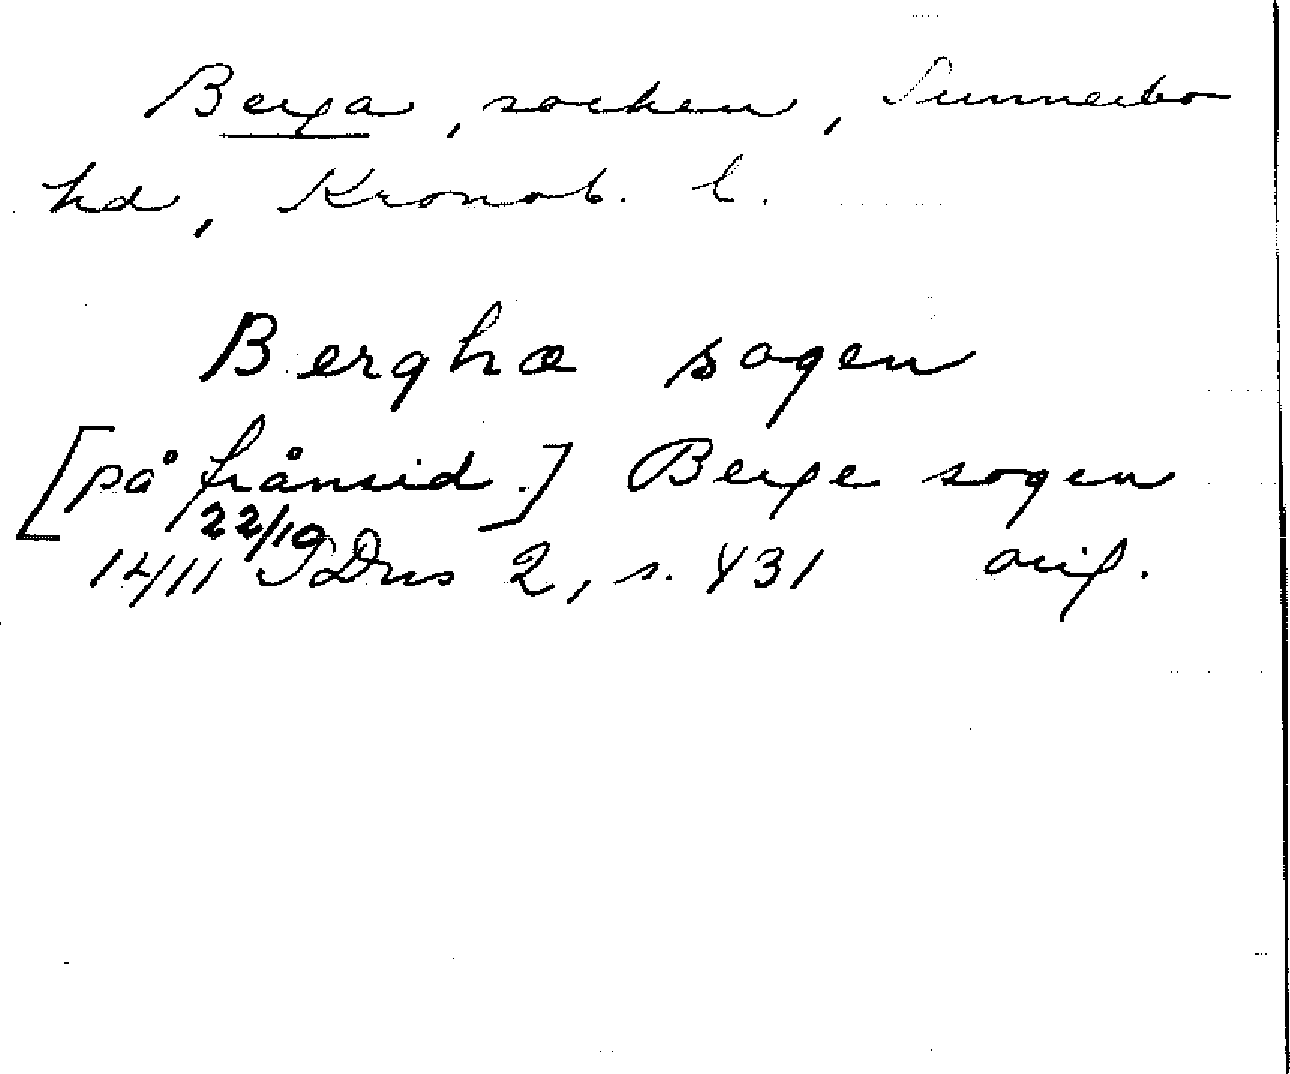 Berga, socken, Sunnerbo
hd, Kronob. l.
Berghæ sogen
[på frånsid.] Berge sogen
22/10
14/11 Dns 2, s. 431 orig.